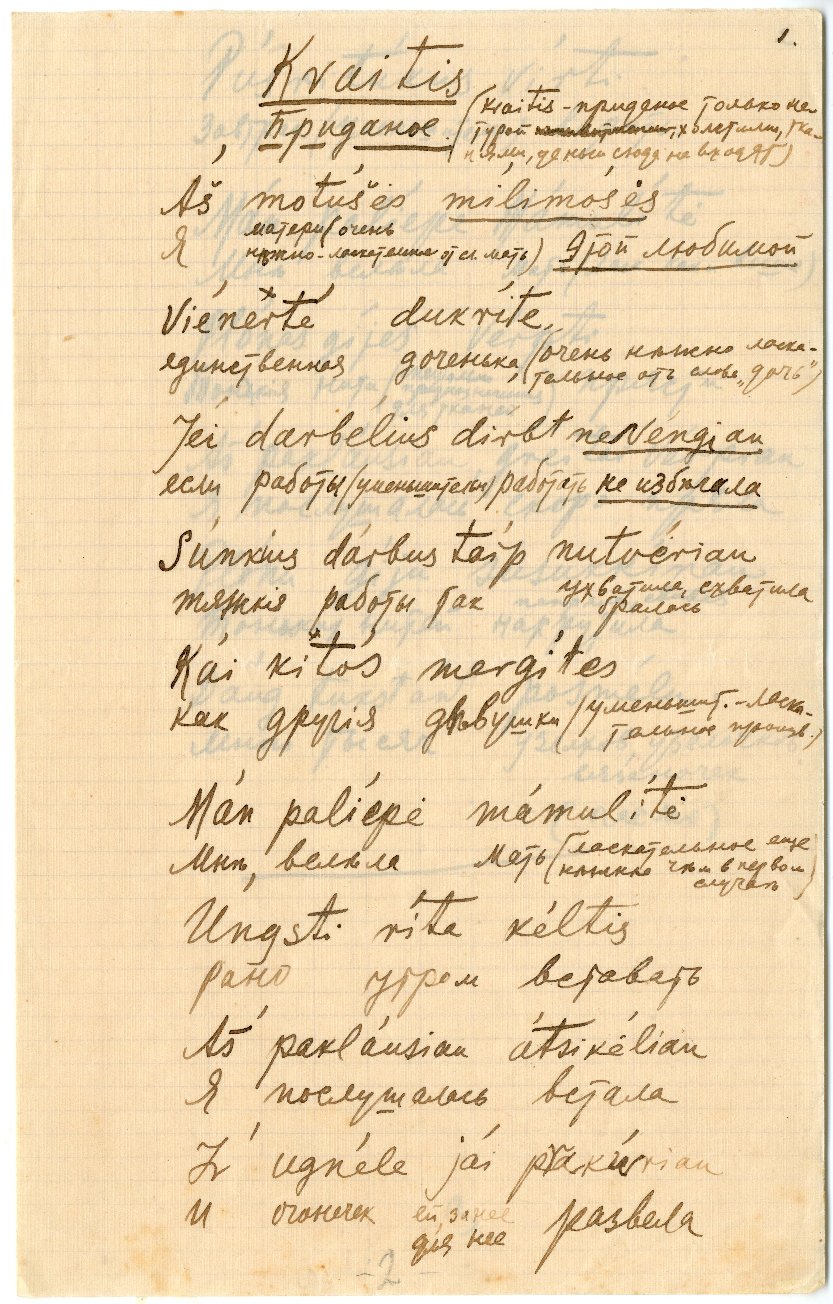 1.
Kvaitis
Приданое (Kraitis - приданое только на-
турой, холстими, тка-
нями, деньги сюда не входят)
Aš motušės milimosės
Я матери (очень
нѣжно-ласкательное от сл. мать) Этой любимой
Viénērtė dukrítė,
единственная доченька, (очень нѣжно ласка-
тельное отъ слова „дочь")
Jéi darbélius dirbt neVéngiau
если работы (уменьшительн) работать не избѣгала
Súnkus dárbus táip nutvériau
тяжкія работы так ухватила, схватила
бралась
Kái kitós mergítes
как другія дѣвушки (уменьшит.-ласка-
тельное произв.)
Mán paliépė mámulítė
Мнѣ, велѣла Мать (ласкательное еще
нѣжнѣе чѣм в первом
случаѣ)
Ungsti ríta kéltis
Рано утром вставать
Aš pakláusiau átsikéliau
Я послушалась встала
Ir ugnéle jái prakúriau
и огонечек ей, за нее
для нее развела
-2-